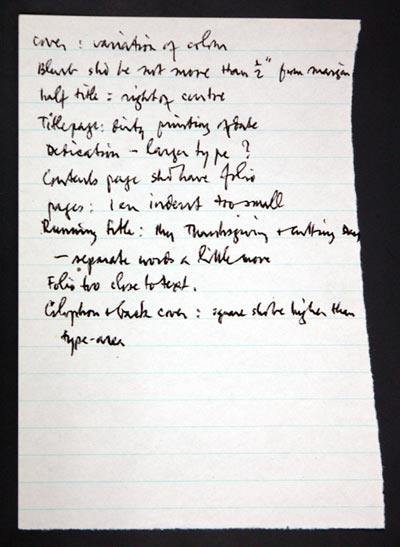 cover : variation of colour
Blurb shd be not more than ½" from margin
half title : right of centre
Title page : dirty printing of date
Dedication – larger type ?
Contents page shd have folio
pages : 1 em indent too small
Running title : Thy Thanksgiving + cutting Day
– separate words a little more
Folio too close to text.
Colophon + back cover : square shd be higher than
type-area